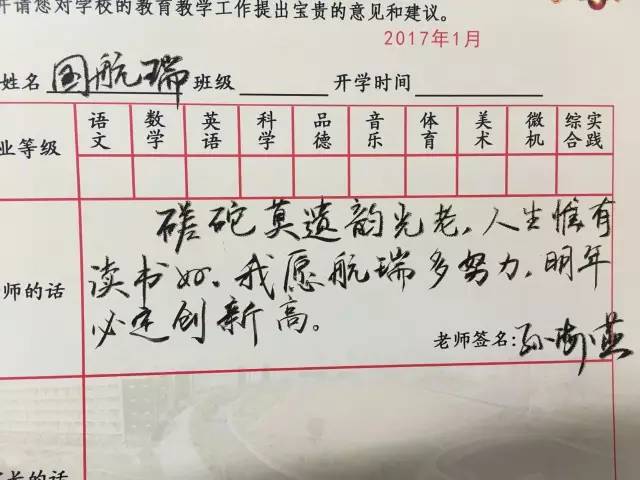 并请您对学校的教育教学工作提出宝贵的意见和建议。
2017年1月
姓名 国航瑞 班级 开学时间
业等级 语文 数学 英语 科学 品德 音乐 体育 美术 微机 综合实践
磋砣莫遗韵光老,人生惟有
师的话 读书好.我愿航瑞多努力,明年
必定创新高。
老师签名:孙燕
长的话